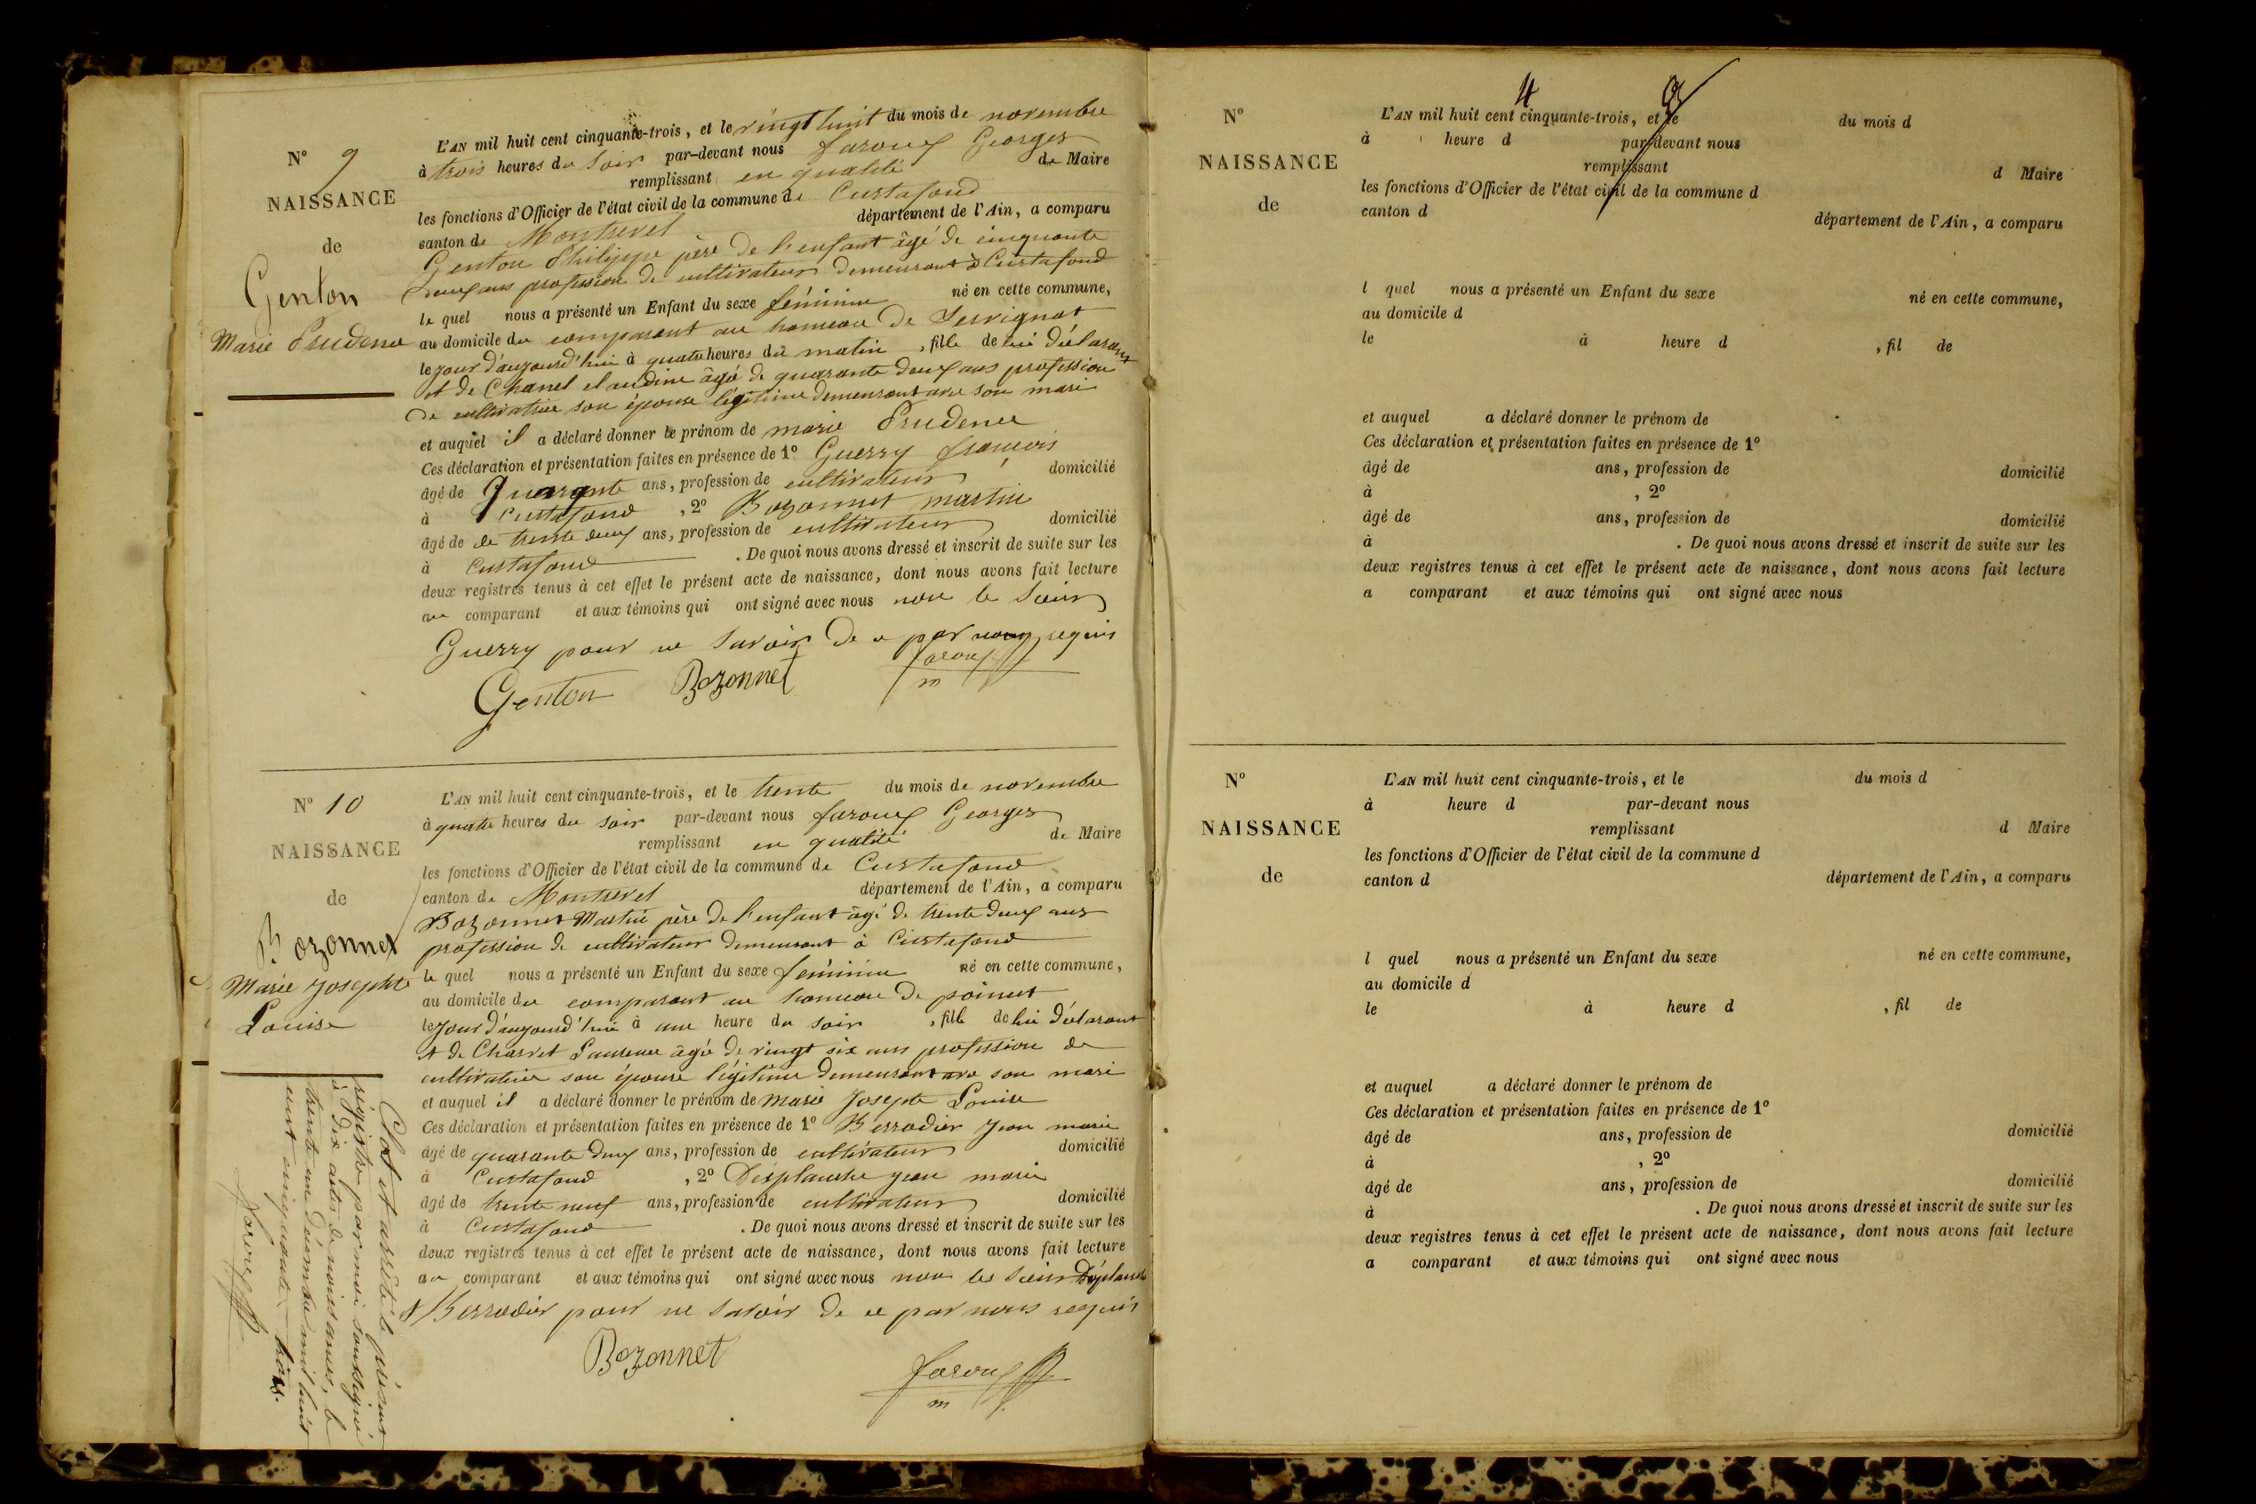 N° 9
NAISSANCE
de
Genton
Marie Prudence
L'AN mil huit cent cinquante-trois, et le vingt huit du mois de novembre
à trois heures du soir par-devant nous Georges
remplissant en qualité de Maire
les fonctions d'Officier de l'état civil de la commune de Curtafond
canton de Montrevel département de l'Ain, a comparu
Genton Philippe père de l'enfant âgé de cinquante
ans profession de cultivateur demeurant à Curtafond
le quel nous a présenté un Enfant du sexe féminin né en cette commune,
au domicile du comparant au hameau de Servignat
le jour d'aujourd'hui à quatre heures du matin, fille de lui déclarant
et de Chanel claudine âgé de quarante deux ans profession
de cultivatrice son épouse légitime demeurant avec son mari
et auquel il a déclaré donner le prénom de marie Prudence
Ces déclaration et présentation faites en présence de 1° Guerry francois
âgé de Quarante ans, profession de cultivateur domicilié
à Curtafond, 2° Bozonnet martin
âgé de de trente deux ans, profession de cultivateur domicilié
à Curtafond. De quoi nous avons dressé et inscrit de suite sur les
deux registres tenus à cet effet le présent acte de naissance, dont nous avons fait lecture
au comparant et aux témoins qui ont signé avec nous non le Sieur
Guerry pour ne savoir de ce par nous requis
Genton Bozonnet
N° 10
NAISSANCE
de
Bozonnet
Marie Josephte
Louise
L'AN mil huit cent cinquante-trois, et le trente du mois de novembre
à quatre heures du soir par-devant nous Georges
remplissant en qualité de Maire
les fonctions d'Officier de l'état civil de la commune de Curtafond
canton de Montrevel département de l'Ain, a comparu
Bozonnet Martin père de l'enfant âgé de trente deux ans
profession de cultivateur demeurant à Curtafond
le quel nous a présenté un Enfant du sexe féminin né en cette commune,
au domicile du comparant au hameau de
le jour d'aujourd'hui à une heure du soir, fille de lui déclarant
et de Charvet Laurence âgé de vingt six ans profession de
cultivatrice son épouse légitime demeurant avec son mari
et auquel il a déclaré donner le prénom de Marie Josepte Louise
Ces déclaration et présentation faites en présence de 1° Berrodier Jean marie
âgé de quarante deux ans, profession de cultivateur domicilié
à Curtafond, 2° Desplanche jean marie
âgé de trente neuf ans, profession de cultivateur domicilié
à Curtafond. De quoi nous avons dressé et inscrit de suite sur les
deux registres tenus à cet effet le présent acte de naissance, dont nous avons fait lecture
au comparant et aux témoins qui ont signé avec nous non les Sieurs
et Berrodier pour ne savoir de ce par nous requis
Bozonnet
m
Clos et arrêté le présent
régistre par moi soussigné
à dix actes de naissances, le
trente un décembre mil huit
cent cinquante trois.
4
N°
NAISSANCE
de
L'AN mil huit cent cinquante-trois, et le du mois d
à heure d par-devant nous
remplissant d Maire
les fonctions d'Officier de l'état civil de la commune d
canton d département de l'Ain, a comparu
l quel nous a présenté un Enfant du sexe né en cette commune,
au domicile d
le à heure d , fil de
et auquel a déclaré donner le prénom de
Ces déclaration et présentation faites en présence de 1°
âgé de ans, profession de domicilié
à , 2°
âgé de ans, profession de domicilié
à . De quoi nous avons dressé et inscrit de suite sur les
deux registres tenus à cet effet le présent acte de naissance, dont nous avons fait lecture
a comparant et aux témoins qui ont signé avec nous
N°
NAISSANCE
de
L'AN mil huit cent cinquante-trois, et le du mois d
à heure d par-devant nous
remplissant d Maire
les fonctions d'Officier de l'état civil de la commune d
canton d département de l'Ain, a comparu
l quel nous a présenté un Enfant du sexe né en cette commune,
au domicile d
le à heure d , fil de
et auquel a déclaré donner le prénom de
Ces déclaration et présentation faites en présence de 1°
âgé de ans, profession de domicilié
à , 2°
âgé de ans, profession de domicilié
à . De quoi nous avons dressé et inscrit de suite sur les
deux registres tenus à cet effet le présent acte de naissance, dont nous avons fait lecture
a comparant et aux témoins qui ont signé avec nous